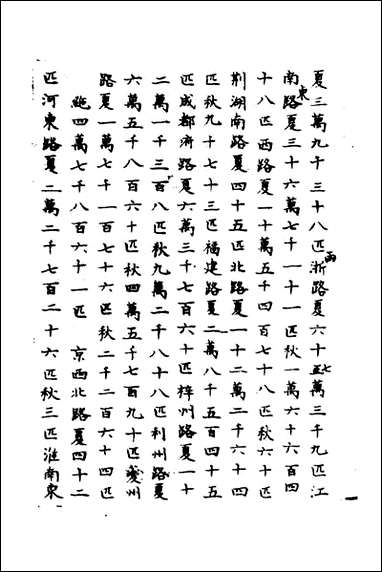 夏三萬九千三十八匹兩浙路夏六十五七萬三千九匹江
南東路夏三十六萬七千一十一匹秋一萬六十六百四
十八匹西路夏一十萬五千四百七十八匹秋六十匹
荆湖南路夏四十五匹北路夏一十二萬二千六十四
匹秋九十七十三匹福建路夏二萬八千五百四十五
匹成都府路夏六萬三千七百六十匹梓州路夏一十
二萬一千三百八匹秋九萬二千八十八匹利州路夏
六萬五千八百六十匹秋四萬五千七百九十匹夔州
路夏一萬七千一百七十六匹秋二千二百六十四匹
絁四萬七千八百六十一匹 京西北路夏四十二
匹河東路夏二萬二千七百二十六匹秋三匹淮南東